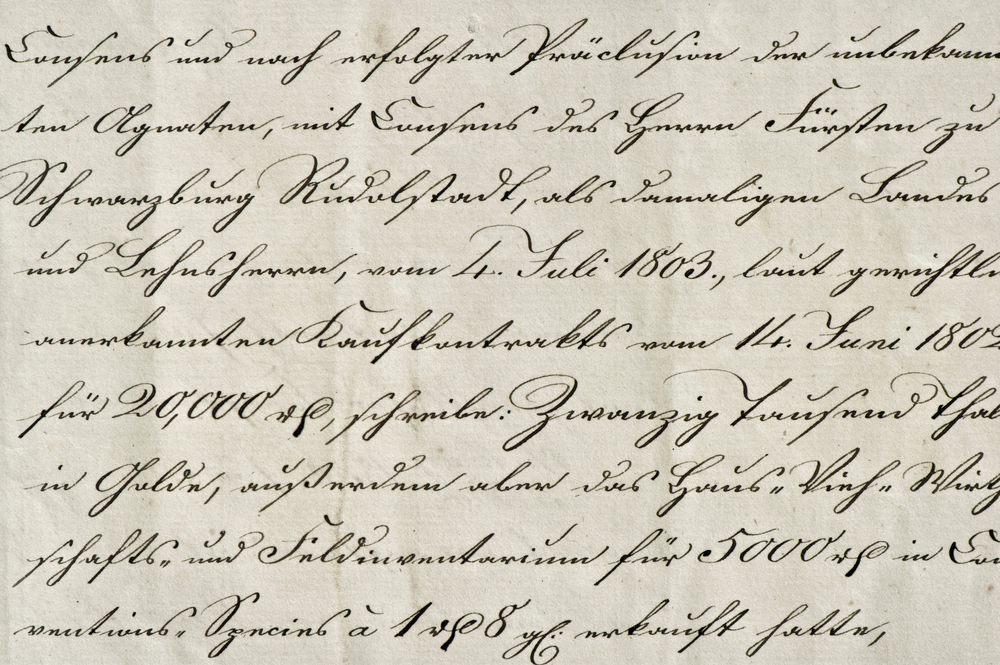 Consens und nach erfolgter Präclusion der unbekann
ten Agnaten, mit Consens des Herrn Fürsten zu
Schwarzburg Rudolstadt, als damaligen Landes
und Lehnsherrn, vom 4. Juli 1803., laut gerichtli
anerkannten Kaufkontrakts vom 14. Juni 1802
für 20,000 rℓ, schreibe: Zwanzig Tausend Thal
in Golde, außerdem aber das Haus- Vieh- Wirth
schafts- und Feldinventarium für 5000 rℓ in Con
ventions- Species à 1 rℓ 8 gl. erkauft hatte,